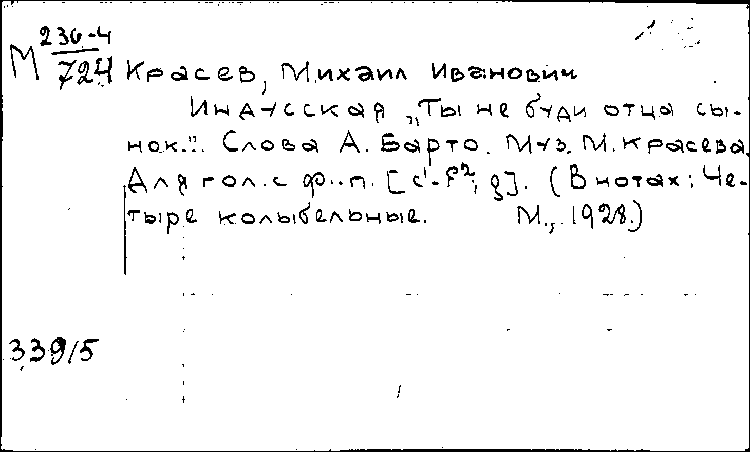 М 236-4
724 Красев, Михаил Иванович
Индусская „Ты не буди отца сы-
нок..." Слова А. Барто. Муз. М. Красева.
Для гол. с ф.-п. [c¹-f²; g]. (В нотах: Че-
тыре колыбельные. М., 1928.)
339/5